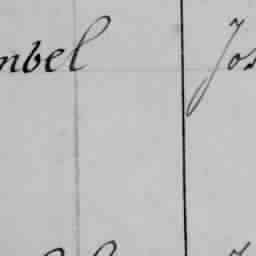 mbel Jos